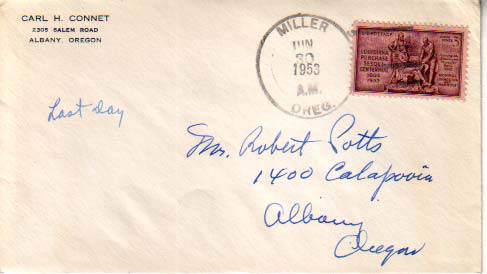 CARL H. CONNET
2305 SALEM ROAD
ALBANY, OREGON
MILLER
JUN
30
1953
A.M.
OREG.
LOUISIANA
PURCHASE
SESQUI-
CENTENNIAL
1803
1953
Last day
Mr. Robert Potts
1400 Calapooia
Albany
Oregon